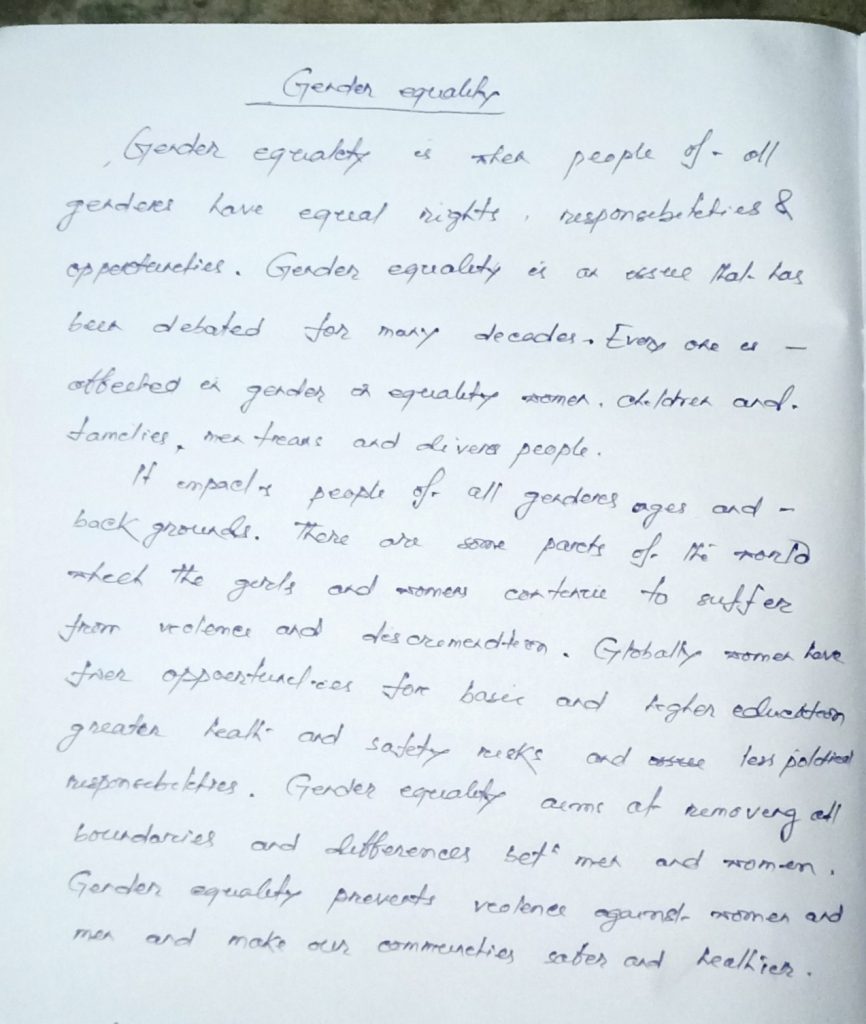 Gender equality
Gender equality is when people of all
genderes have equal rights, responsebilities &
oppertunities. Gender equality is an issue that has
been debated for many decades. Every one is -
affected in gender in equality women, children and
families, men treans and divers people.
It impacts people of all genderes ages and -
back grounds. There are some parcts of the world
whech the gerls and womens contenue to suffer
from veolence and descremenation. Globally women have
fwer oppoertunities for basic and higher education
greater health and safety risks and less political
responsebilities. Gender equality aems at removeng all
boundaries and differences betn men and women.
Gender equality prevents veolence against women and
men and make our communities safer and healthier.